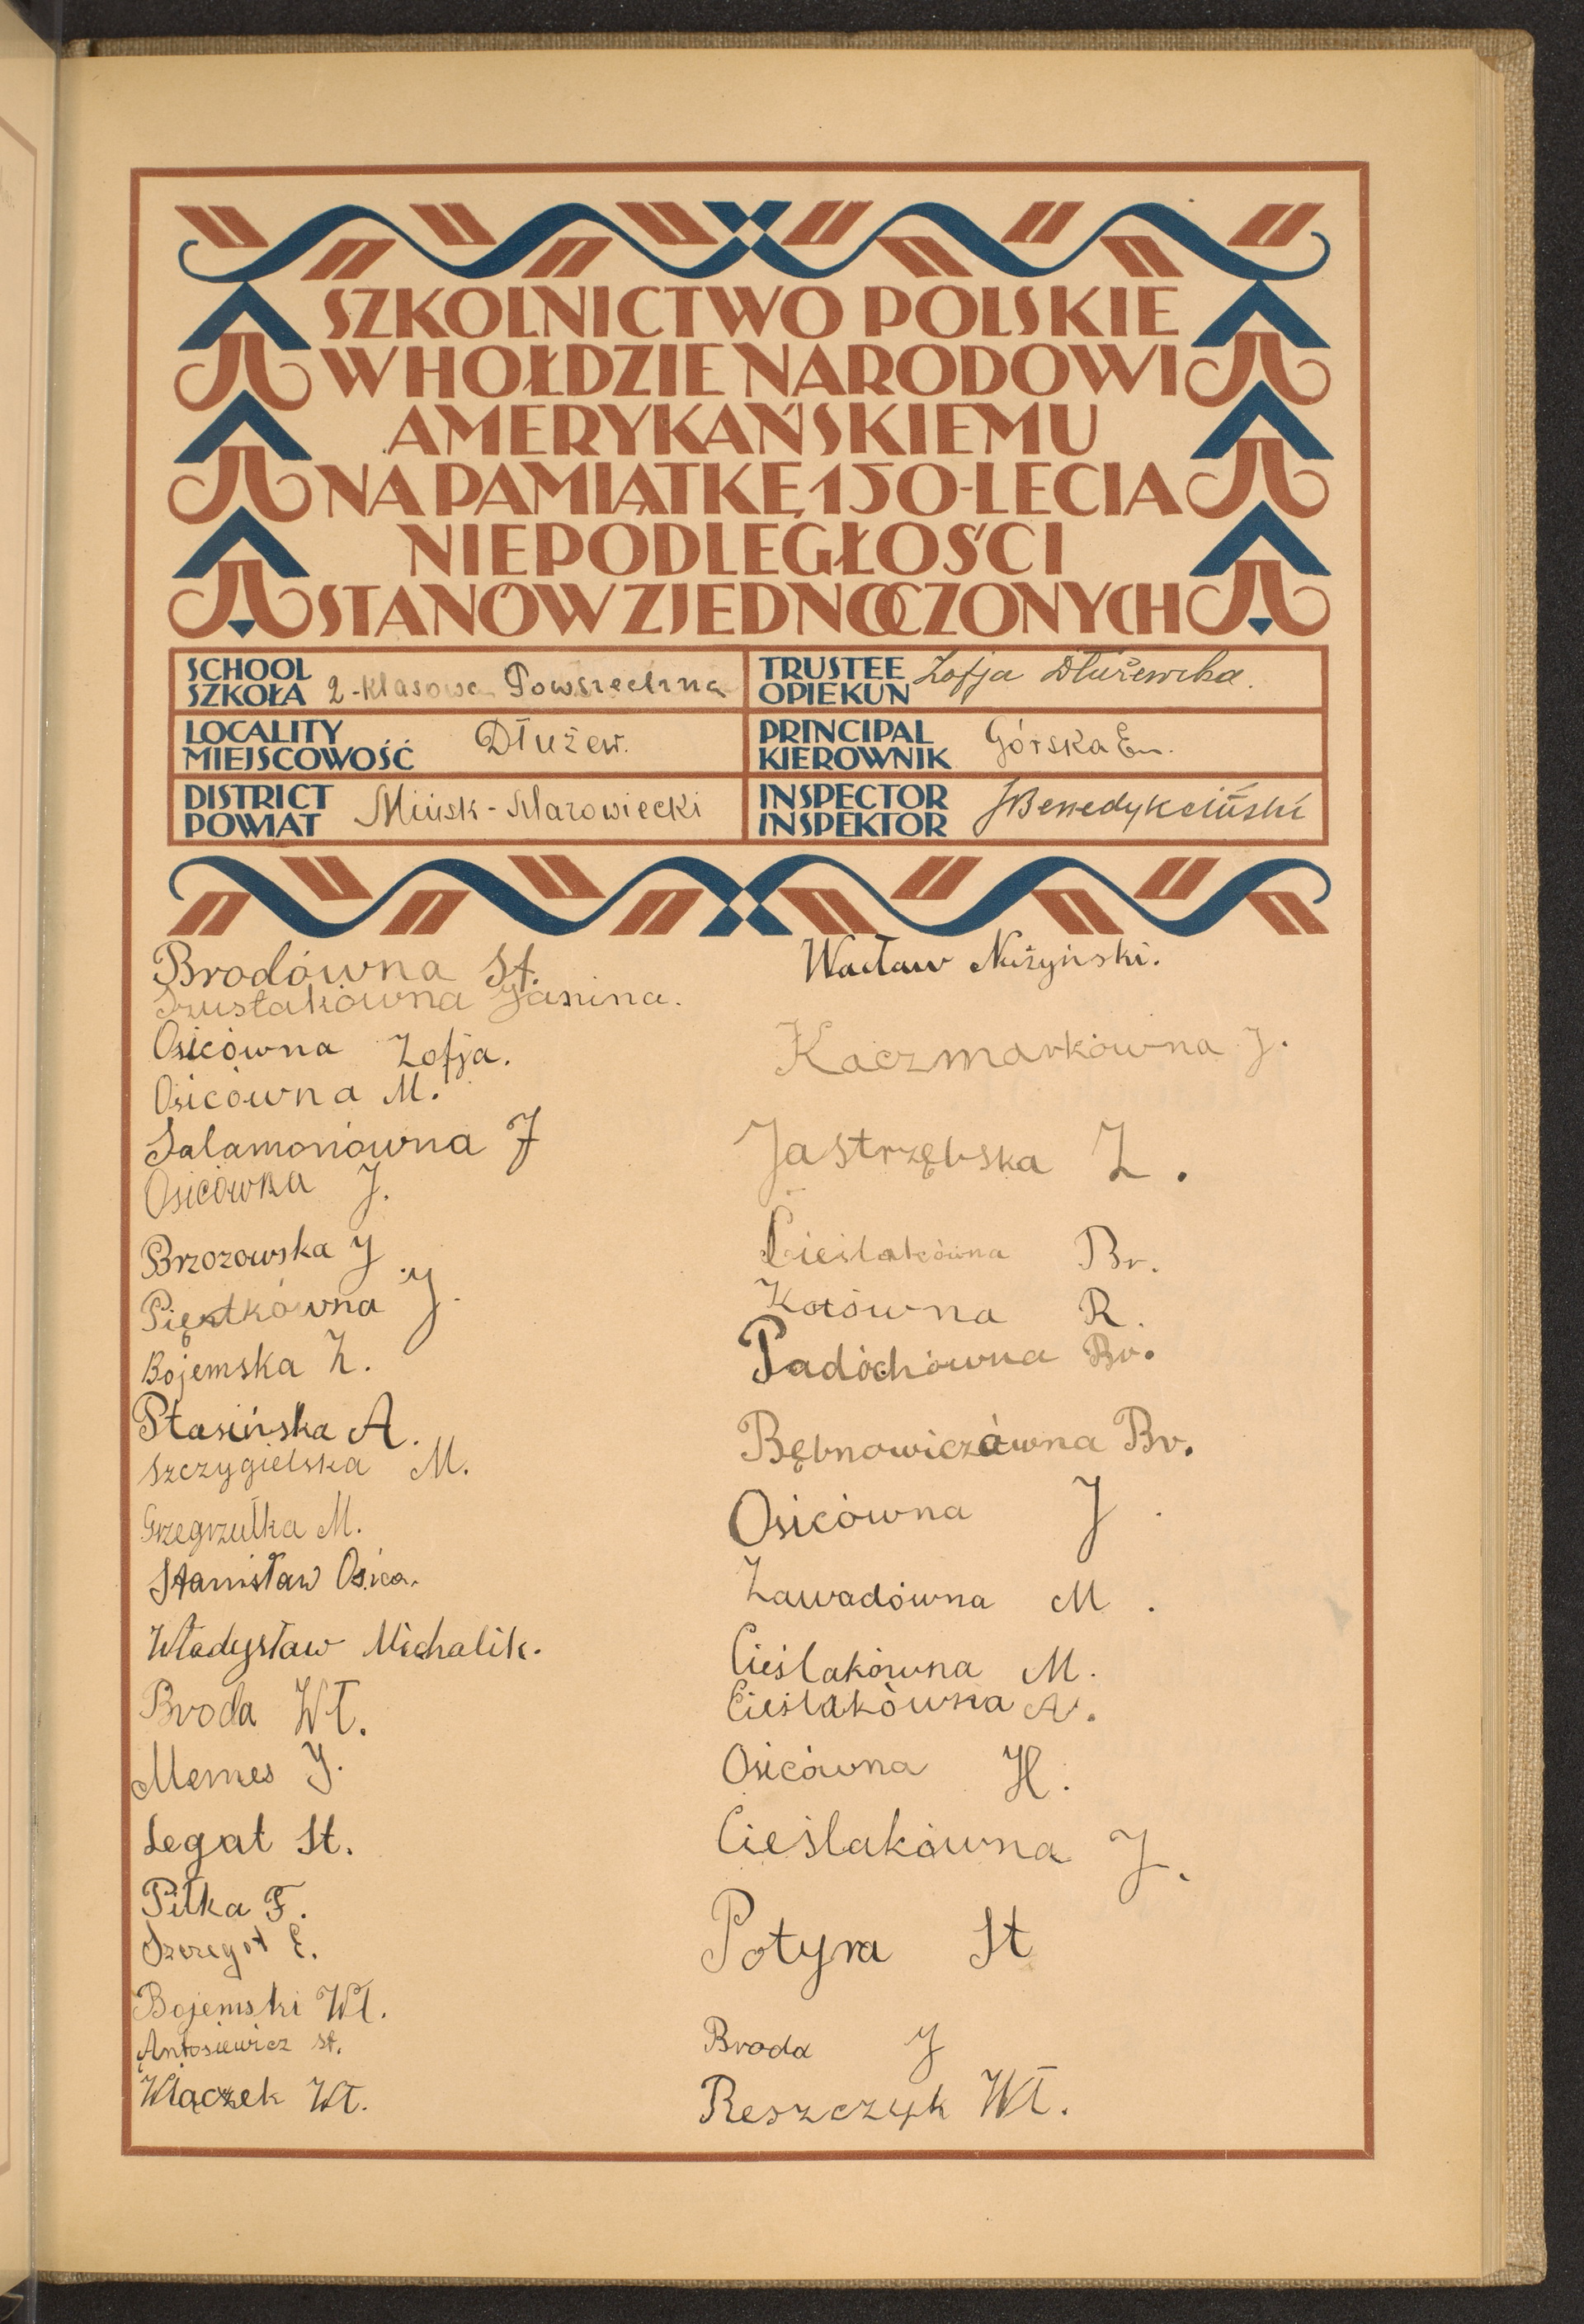 SZKOLNICTWO POLSKIE
W HOŁDZIE NARODOWI
AMERYKAŃSKIEMU
NA PAMIĄTKĘ 150-LECIA
NIEPODLEGŁOŚCI
STANÓW ZJEDNOCZONYCH
SCHOOL
SZKOŁA 2-klasowa Powszechna
TRUSTEE
OPIEKUN Zofja Dłużewska.
LOCALITY
MIEJSCOWOŚĆ Dłużew.
PRINCIPAL
KIEROWNIK Górska Em.
DISTRICT
POWIAT Mińsk-Mazowiecki
INSPECTOR
INSPEKTOR J Benedykciński
Brodówna St.
Szustakówna Janina.
Osicówna Zofja.
Osicówna M.
Salamonówna J
Osicówna J.
Brzozowska J
Piętkówna J.
Bojemska Z.
Ptasińska A.
Szczygielska M.
Grzegrzułka M.
Stanisław Osica.
Władysław Michalik.
Broda Wł.
Memes J.
Legat St.
Piłka F.
Szeregot E.
Bojemski Wł.
Antosiewicz St.
Włączek Wł.
Wacław Niżyński.
Kaczmarkówna J.
Jastrzębska Z.
Cieślakówna Br.
Kotówna R.
Padóchówna Br.
Bębnowiczówna Br.
Osicówna J.
Zawadówna M.
Cieślakówna M.
Cieślakówna A.
Osicówna H.
Cieślakówna J.
Potyra St
Broda J
Reszczyk Wł.